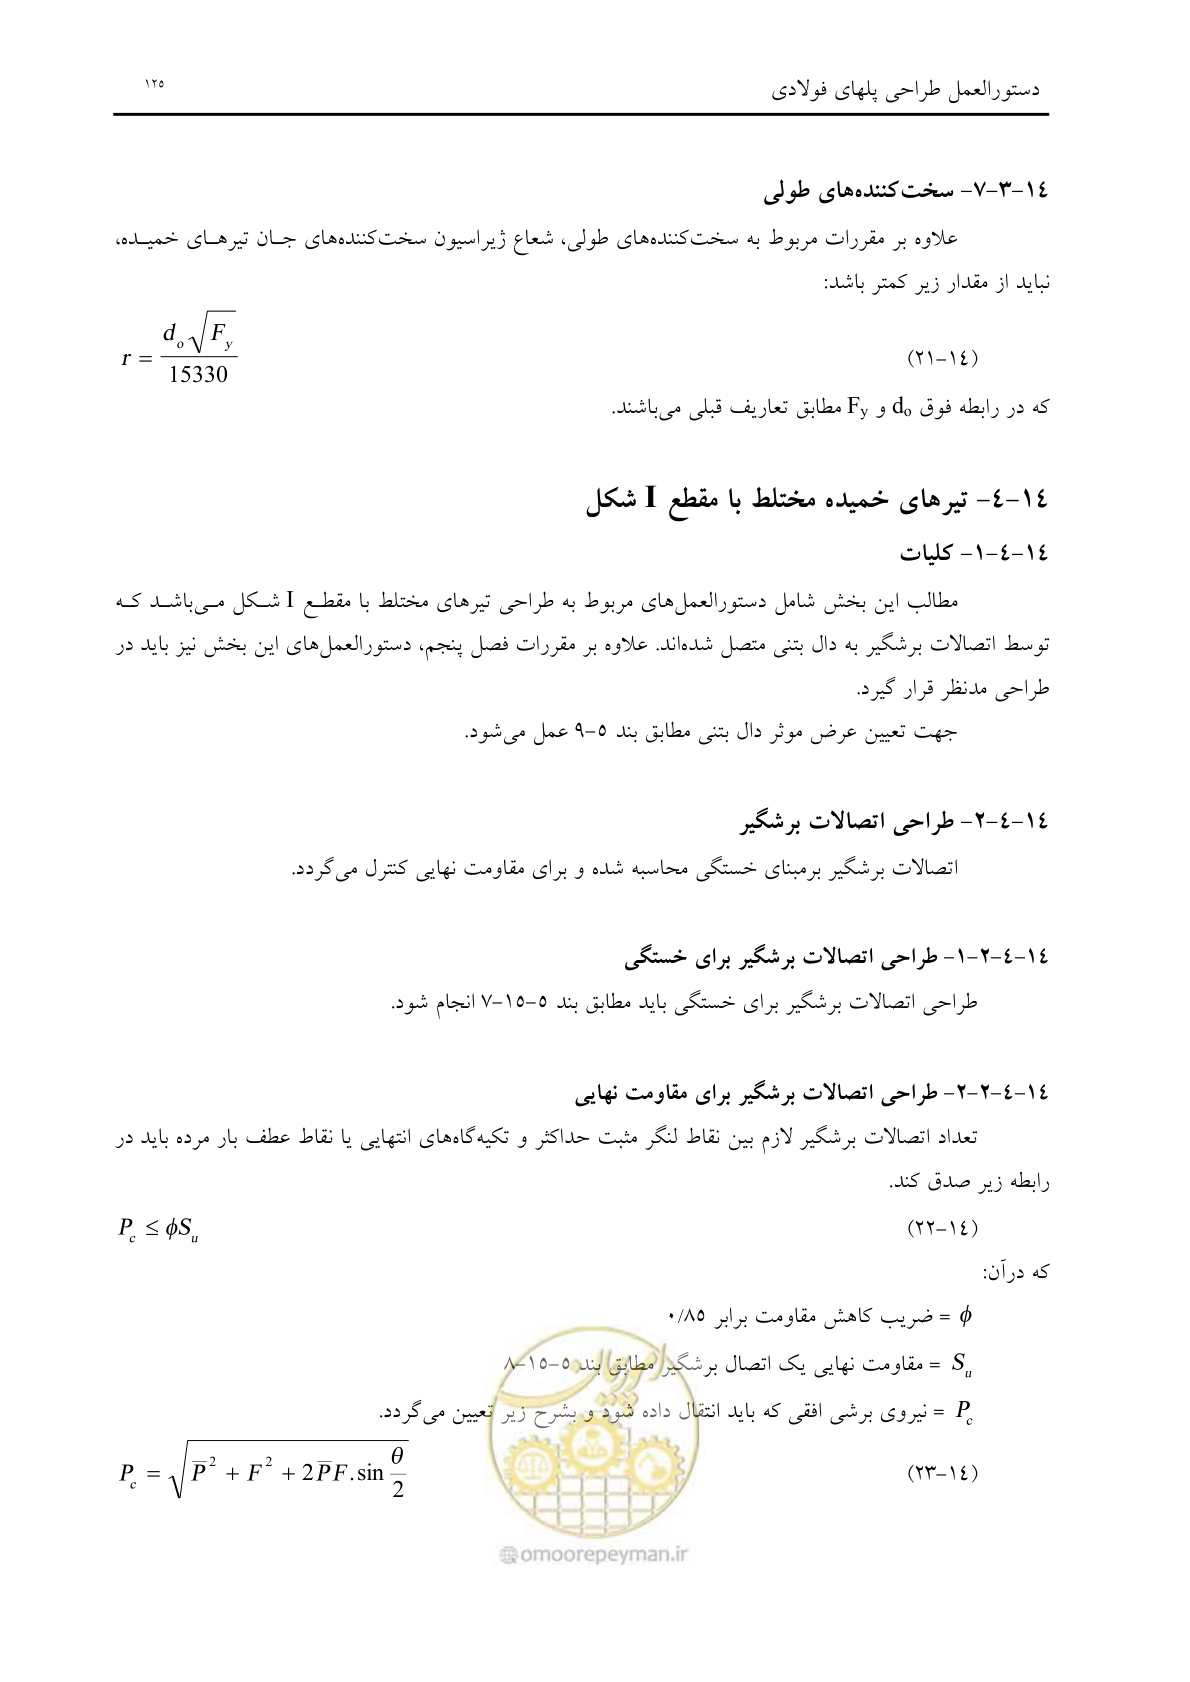 دستورالعمل طراحی پلهای فولادی ۱۲۵
۱۴-۳-۷- سخت‌کننده‌های طولی
علاوه بر مقررات مربوط به سخت‌کننده‌های طولی، شعاع ژیراسیون سخت‌کننده‌های جان تیرهای خمیده،
نباید از مقدار زیر کمتر باشد:
(۱۴-۲۱) r = d_o √F_y / 15330
که در رابطه فوق d_o و F_y مطابق تعاریف قبلی می‌باشند.
۱۴-۴- تیرهای خمیده مختلط با مقطع I شکل
۱۴-۴-۱- کلیات
مطالب این بخش شامل دستورالعمل‌های مربوط به طراحی تیرهای مختلط با مقطع I شکل می‌باشد که
توسط اتصالات برشگیر به دال بتنی متصل شده‌اند. علاوه بر مقررات فصل پنجم، دستورالعمل‌های این بخش نیز باید در
طراحی مدنظر قرار گیرد.
جهت تعیین عرض موثر دال بتنی مطابق بند ۵-۹ عمل می‌شود.
۱۴-۴-۲- طراحی اتصالات برشگیر
اتصالات برشگیر برمبنای خستگی محاسبه شده و برای مقاومت نهایی کنترل می‌گردد.
۱۴-۴-۲-۱- طراحی اتصالات برشگیر برای خستگی
طراحی اتصالات برشگیر برای خستگی باید مطابق بند ۵-۱۵-۷ انجام شود.
۱۴-۴-۲-۲- طراحی اتصالات برشگیر برای مقاومت نهایی
تعداد اتصالات برشگیر لازم بین نقاط لنگر مثبت حداکثر و تکیه‌گاه‌های انتهایی یا نقاط عطف بار مرده باید در
رابطه زیر صدق کند.
(۱۴-۲۲) P_c ≤ ϕS_u
که درآن:
ϕ = ضریب کاهش مقاومت برابر ۰/۸۵
S_u = مقاومت نهایی یک اتصال برشگیر مطابق بند ۵-۱۵-۸
P_c = نیروی برشی افقی که باید انتقال داده شود و بشرح زیر تعیین می‌گردد.
(۱۴-۲۳) P_c = √(P̅² + F² + 2P̅F.sin θ/2)
امور پیمان
@omoorepeyman.ir